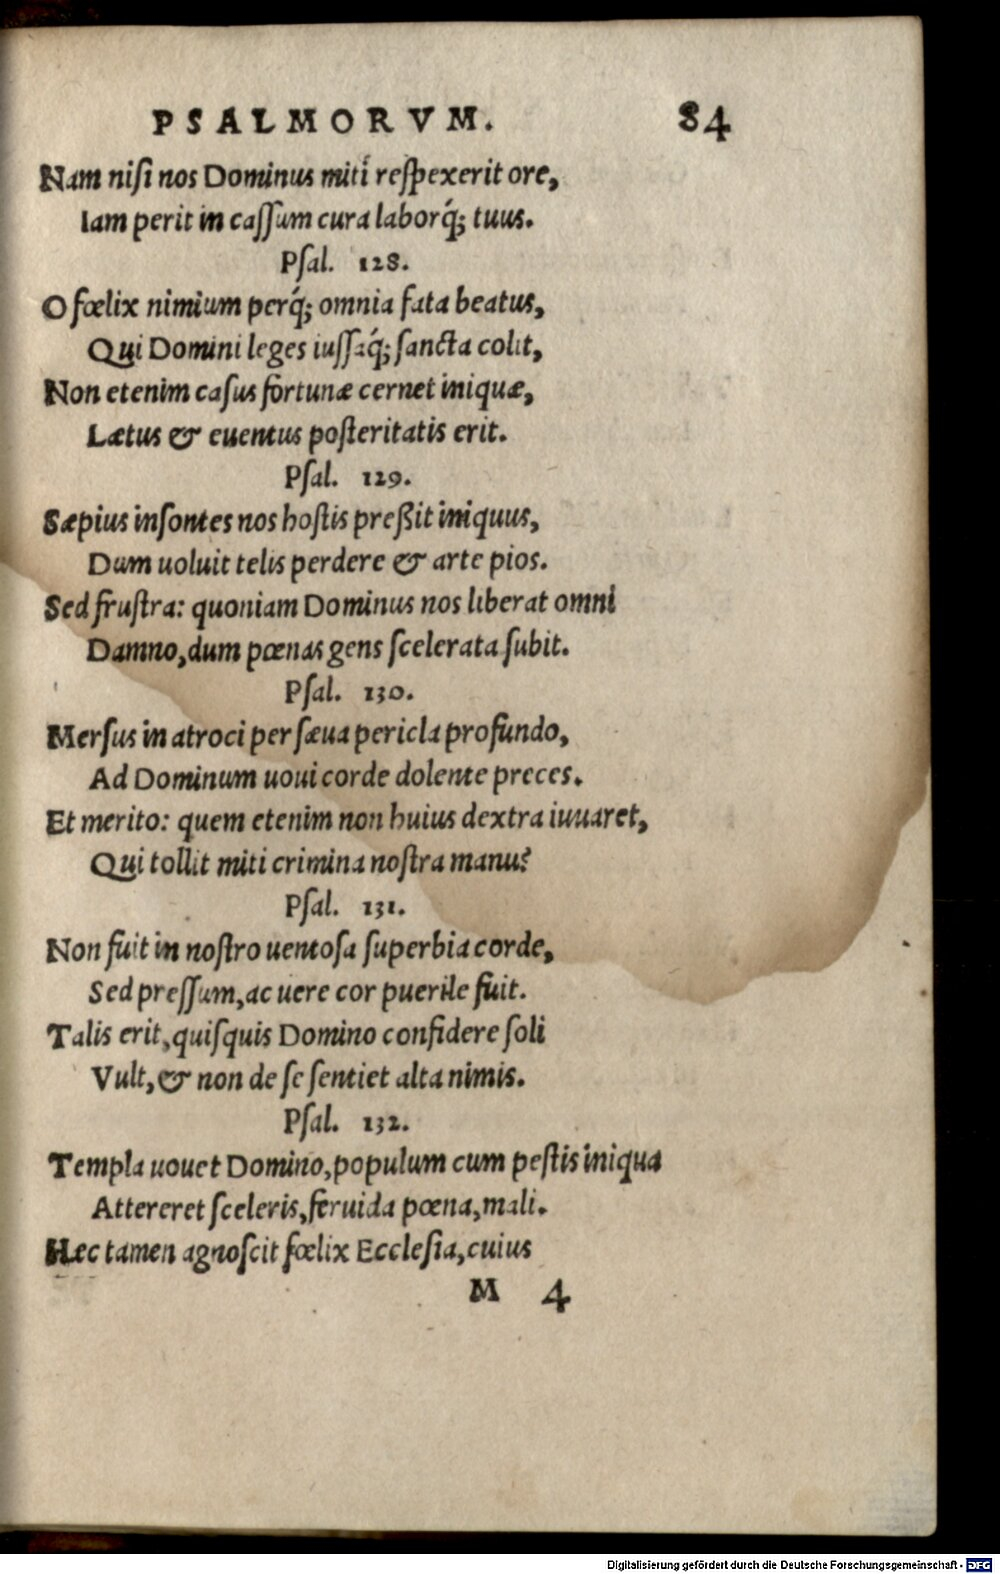 PSALMORVM. 84
Nam niſi nos Dominus miti reſpexerit ore,
Iam perit in caſſum cura laborq́; tuus.
Pſal. 128.
O fœlix nimium perq́; omnia fata beatus,
Qui Domini leges iuſſaq́; ſancta colit,
Non etenim caſus fortunæ cernet iniquæ,
Lætus & euentus poſteritatis erit.
Pſal. 129.
Sæpius inſontes nos hoſtis preßit iniquus,
Dum uoluit telis perdere & arte pios.
Sed fruſtra: quoniam Dominus nos liberat omni
Damno, dum pœnas gens ſcelerata ſubit.
Pſal. 130.
Merſus in atroci per ſæua pericla profundo,
Ad Dominum uoui corde dolente preces.
Et merito: quem etenim non huius dextra iuuaret,
Qui tollit miti crimina noſtra manu?
Pſal. 131.
Non fuit in noſtro uentoſa ſuperbia corde,
Sed preſſum, ac uere cor puerile fuit.
Talis erit, quiſquis Domino confidere ſoli
Vult, & non de ſe ſentiet alta nimis.
Pſal. 132.
Templa uouet Domino, populum cum peſtis iniqua
Attereret ſceleris, feruida pœna, mali.
Hæc tamen agnoſcit fœlix Eccleſia, cuius
M 4
Digitalisierung gefördert durch die Deutsche Forschungsgemeinschaft - DFG